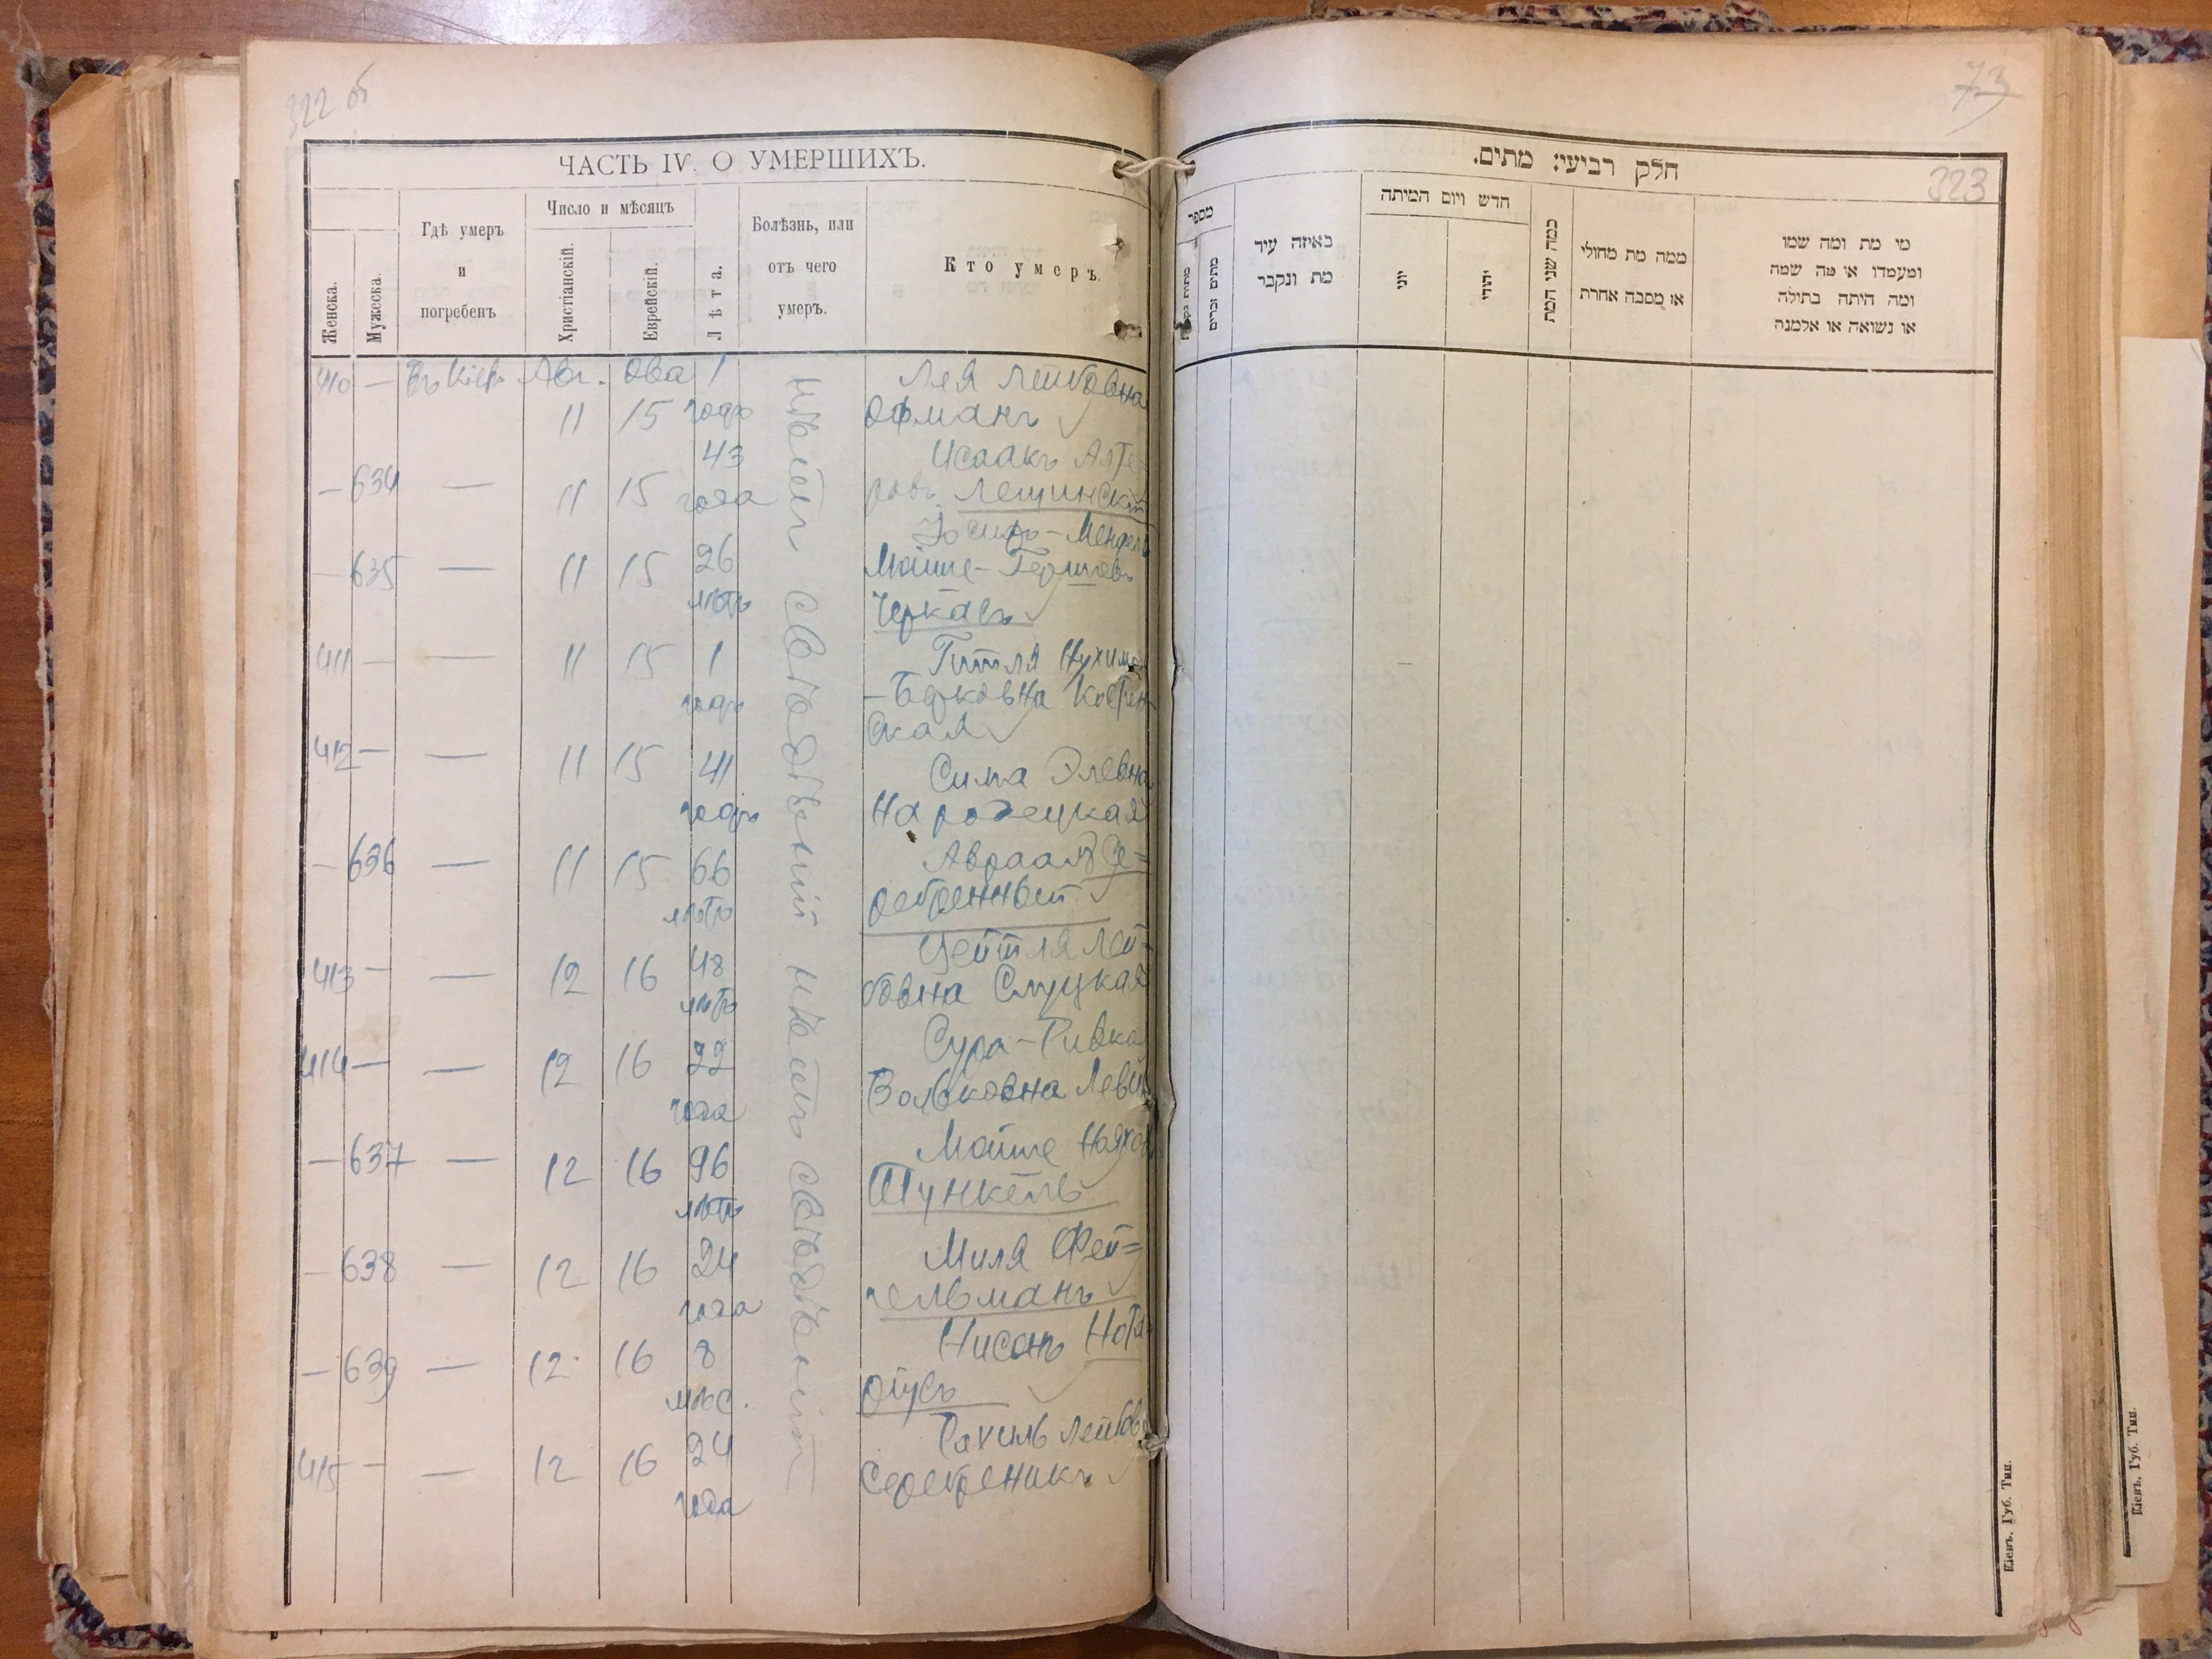 322 об
ЧАСТЬ IV. О УМЕРШИХЪ.
Женска.
Мужеска.
Гдѣ умеръ
и
погребенъ
Число и мѣсяцъ
Христіанскій.
Еврейскій.
Лѣта.
Болѣзнь, или
отъ чего
умеръ.
Кто умеръ.
410 — Въ Кіевѣ Авг. Ова 1 Лея Лейбовна
11 15 годъ Офманъ
43 Исаакъ Алте-
— 634 — 11 15 года ров. Лещинскій
Іосифъ-Мендель
— 635 — 11 15 26 Мойше-Гершов.
лѣтъ Черкасъ
411 — — 11 15 1 Гитля Нухимо
годъ -Берковна Костен-
ская
412 — — 11 15 41 Сима Элевна
годъ Народецкая
— 636 — 11 15 66 Авраамъ Се=
лѣтъ ребренный
Цейтля Лей-
413 — — 12 16 48 бовна Слуцкая
лѣтъ
Сура-Ривка
414 — — 12 16 22 Вольковна Левин
года
— 637 — 12 16 96 Мойше
лѣтъ Шункель
— 638 — 12 16 24 Миля Фей=
года гельманъ
Нисонъ
— 639 — 12 16 8
мѣс.
Рахиль Лейбов
415 — — 12 16 24 Серебреникъ
года
Нѣтъ свѣдѣній нѣтъ свѣдѣній
73
323
חלק רביעי: מתים.
מספר
מתים זכרים
באיזה עיר
מת ונקבר
חדש ויום המיתה
יוני
יהודי
כמה שני המת
ממה מת מחולי
או מסבה אחרת
מי מת ומה שמו
ומעמדו או מה שמה
ומה היתה בתולה
או נשואה או אלמנה
Кіевъ, Губ. Тип.
Кіевъ, Губ. Тип.